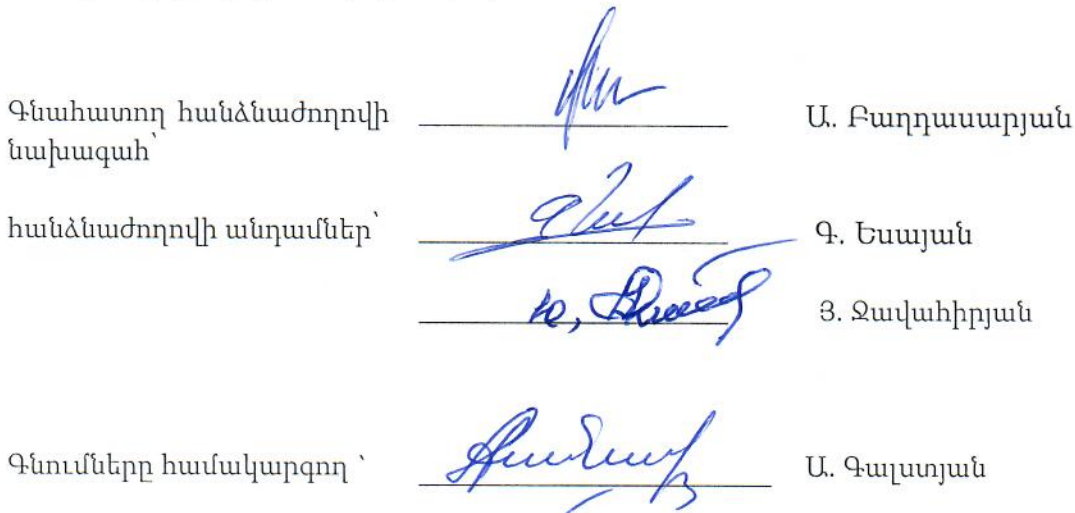 Գնահատող հանձնաժողովի Ա. Բաղդասարյան
նախագահ՝
հանձնաժողովի անդամներ՝ Գ. Եսայան
Յ. Ջավահիրյան
Գնումները համակարգող ՝ Ա. Գալստյան